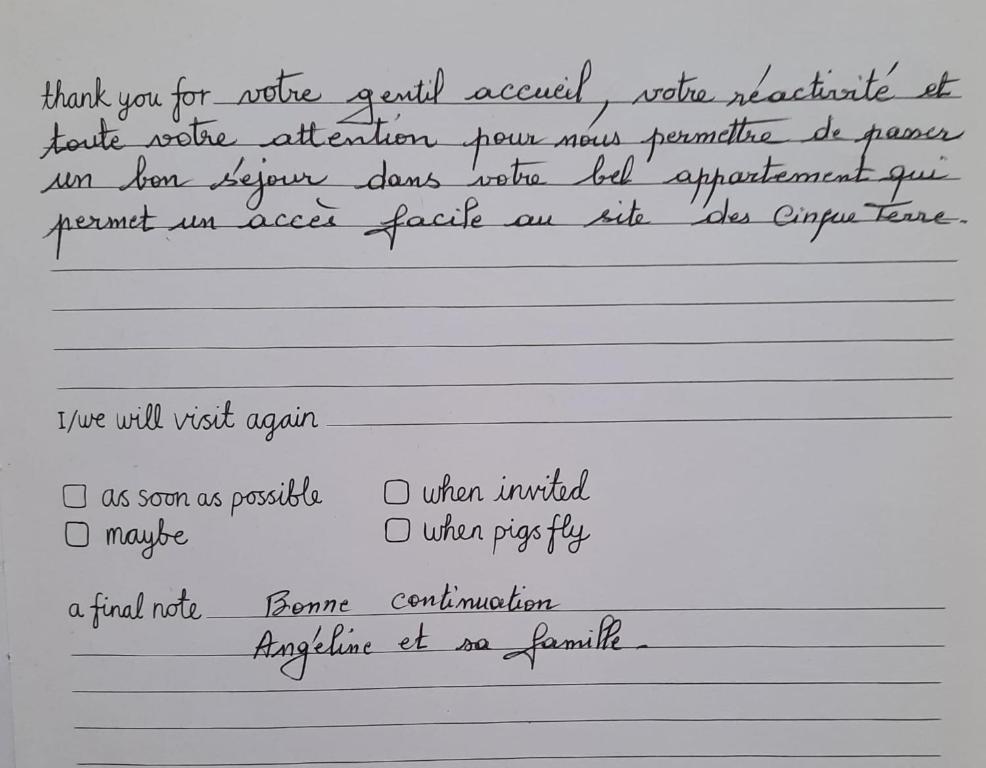 thank you for votre gentil accueil, votre réactivité et
toute votre attention pour nous permettre de passer
un bon séjour dans votre bel appartement qui
permet un accès facile au site des Cinque Terre.
I/we will visit again
as soon as possible when invited
maybe when pigs fly
a final note Bonne continuation
Angéline et sa famille.